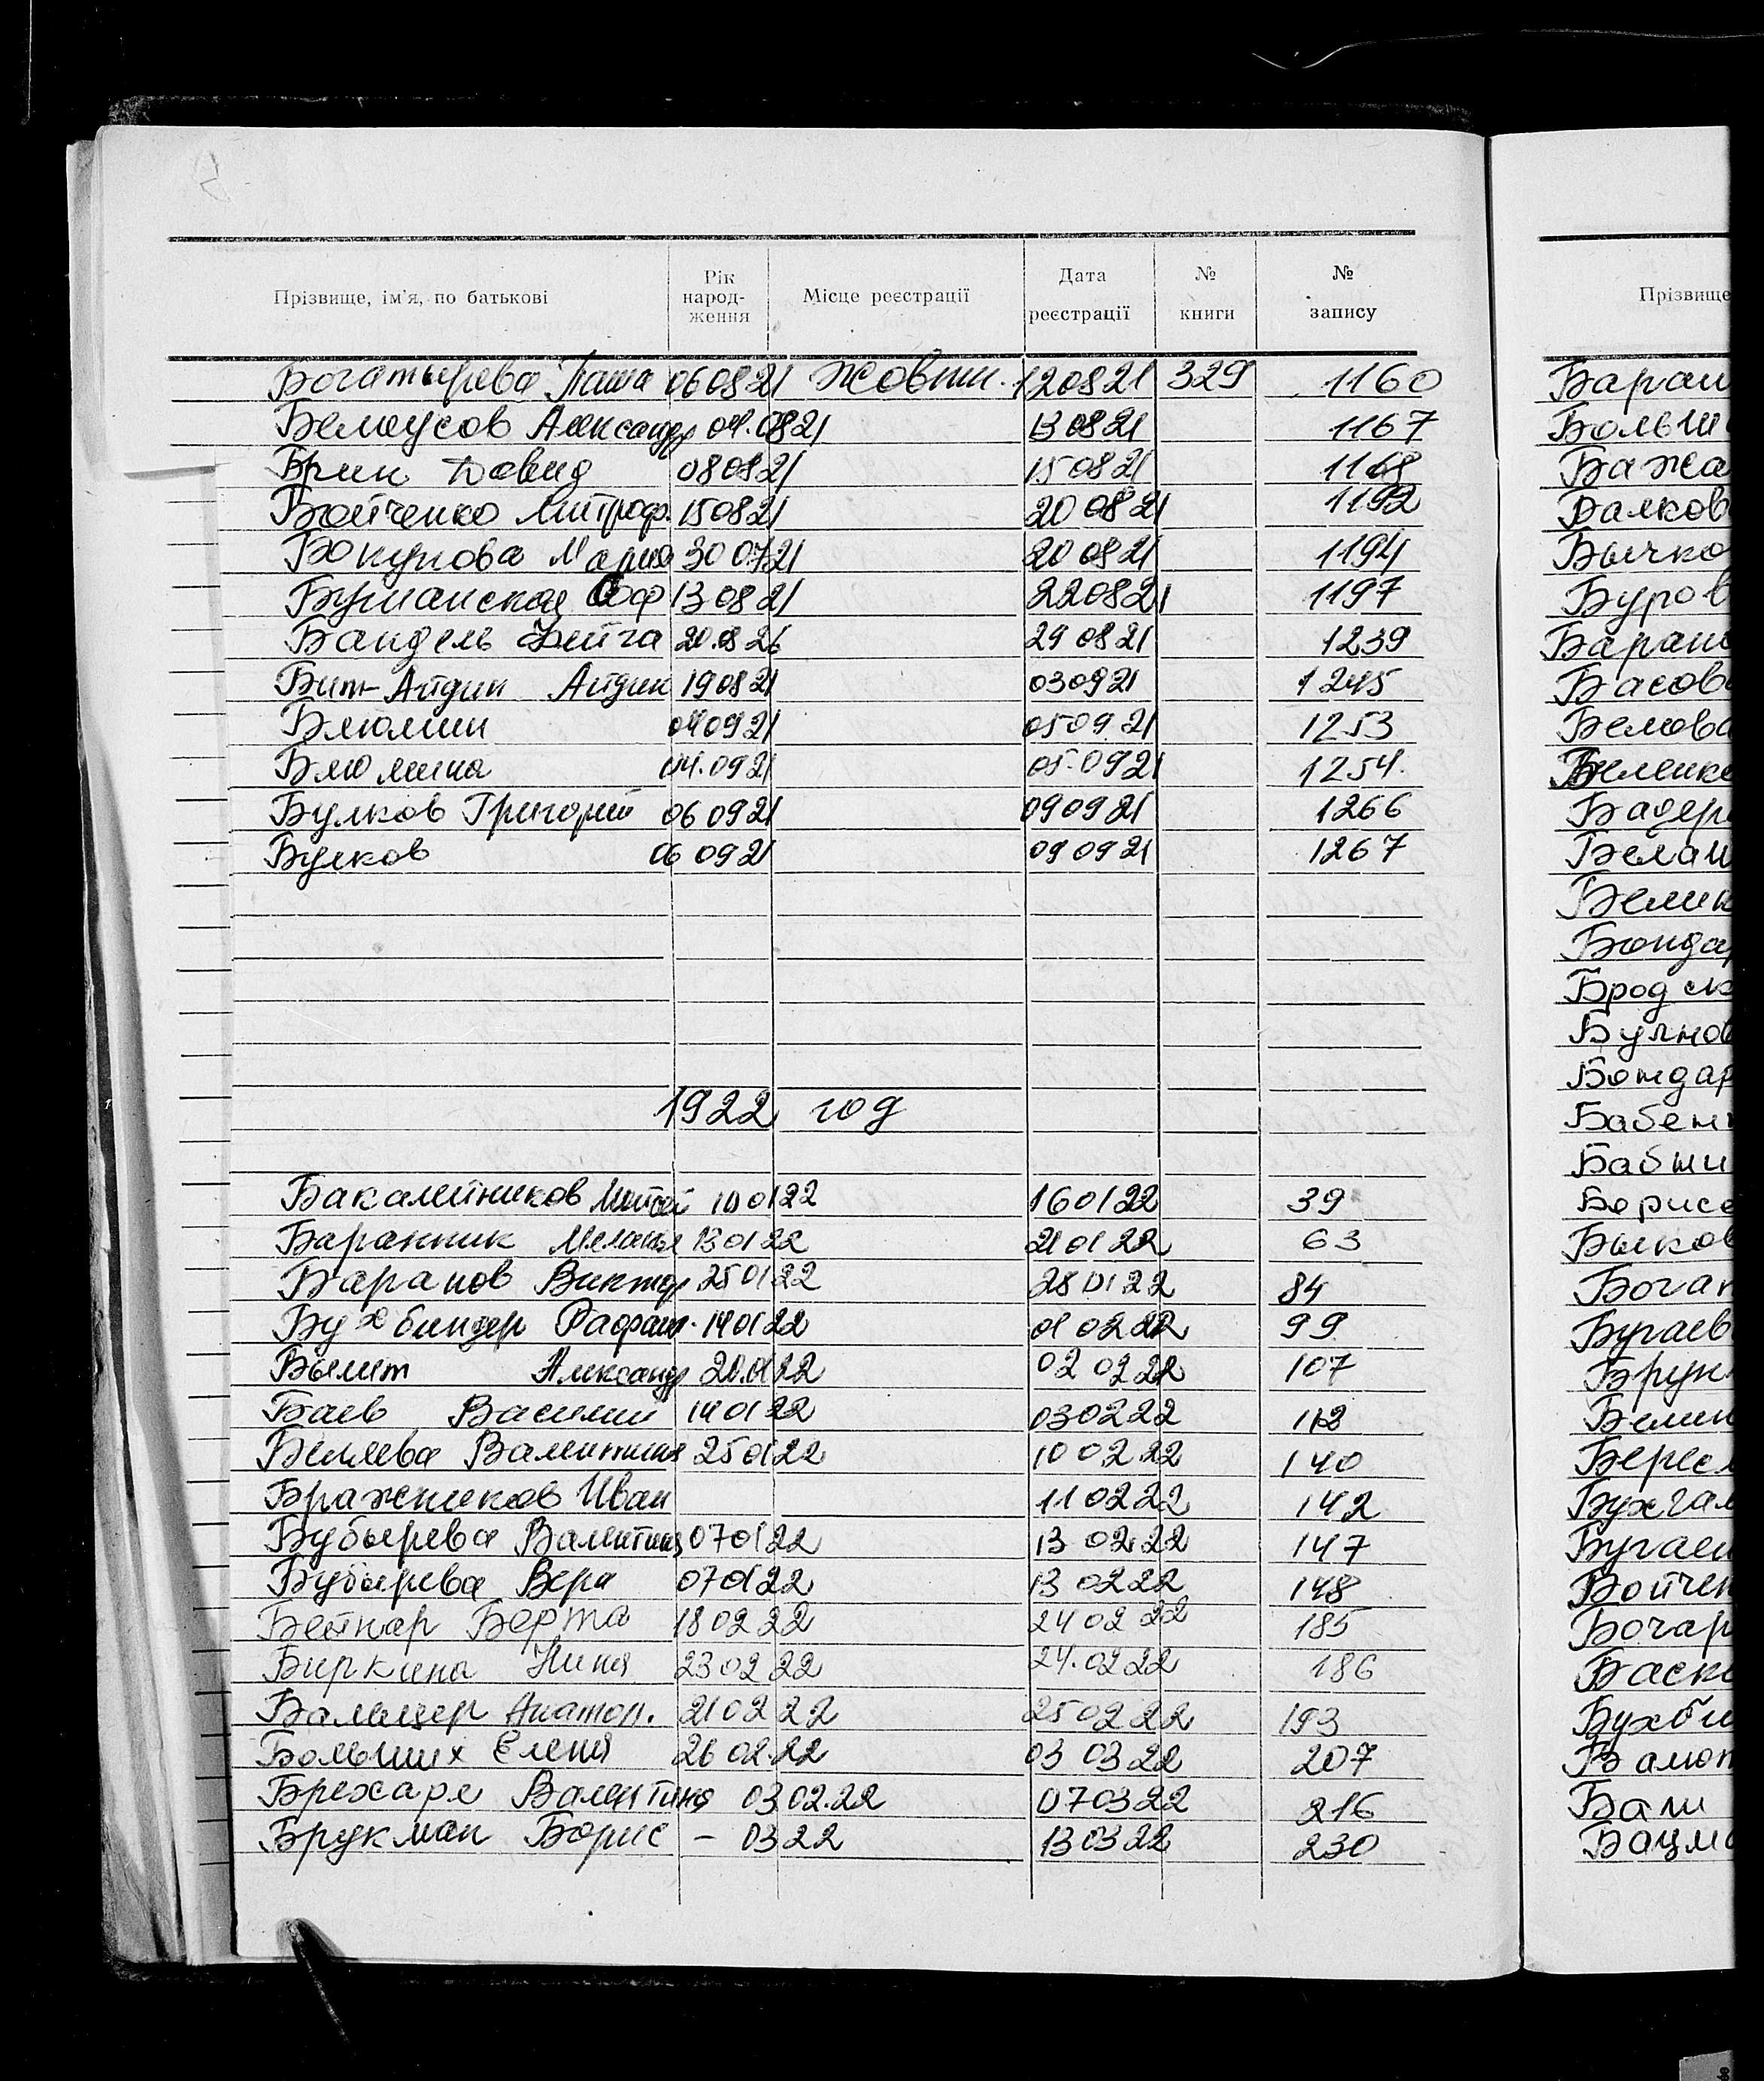 Прізвище, ім'я, по батькові Рік народ- ження Місце реєстрації Дата реєстрації № книги № запису Прізвище
Богатырева Паша 060821 Жовтн. 120821 329 1160
Белоусов Александр 04.0821 130821 1167
Брин Довид 080821 150821 1168
Бойченко Митроф. 150821 200821 1192
Мария 300721 200821 1194
Бушанская Соф 130821 220821 1197
Бандель 290821 1239
Бит-Айдин Айдин 190821 030921 1245
Блюмин 040921 050921 1253
Блюмина 04.0921 05.0921 1254.
Булков Григорий 060921 090921 1266
Булков 060921 090921 1267
1922 год
Бакалейников 100122 160122 39
Баранник Меланья 130122 210122 63
Баранов Виктор 250122 280122 84
Бухбиндер Рафаил. 140122 010222 99
Вылит Александр 20.0122 020222 107
Баев Василий 140122 030222 112
Беляева Валентина 250122 100222 140
Бражников Иван 110222 142
Бубырева Валентина 070122 130222 147
Бубырева Вера 070122 130222 148
Бейнар Берта 180222 240222 185
Биркина Нина 230222 24.0222 186
Бальцер Анатол. 210222 250222 193
Больших Елена 2602.22 030322 207
Валентина 0302.22 070322 216
Брукман Борис – 0322 130322 230
Баран
Больши
Бажа
Балков
Бычко
Буров
Баран
Басов
Белова
Беленк
Бадер
Белан
Белик
Бонда
Бродск
Булнов
Бондар
Бабен
Бабши
Борисо
Быков
Богат
Бугаев
Брун
Белин
Бухгал
Бугаен
Бойчен
Бочар
Баск
Бухби
Бали
Бацма